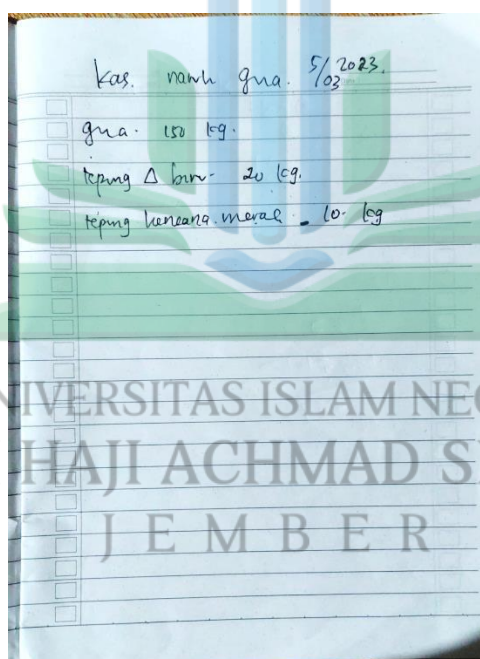 kas. nawh gua. 5/03 2023.
gua. 150 kg.
tepung Δ biru- 20 kg.
tepung kencana. merah - 10. kg
UNIVERSITAS ISLAM NEG
HAJI ACHMAD S
JEMBER